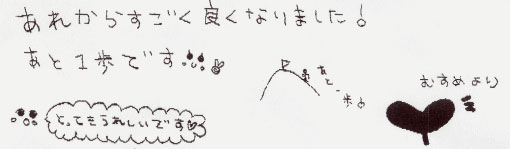 あれからすごく良くなりました!
あと1歩です
あと一歩
むすめより
とってもうれしいです